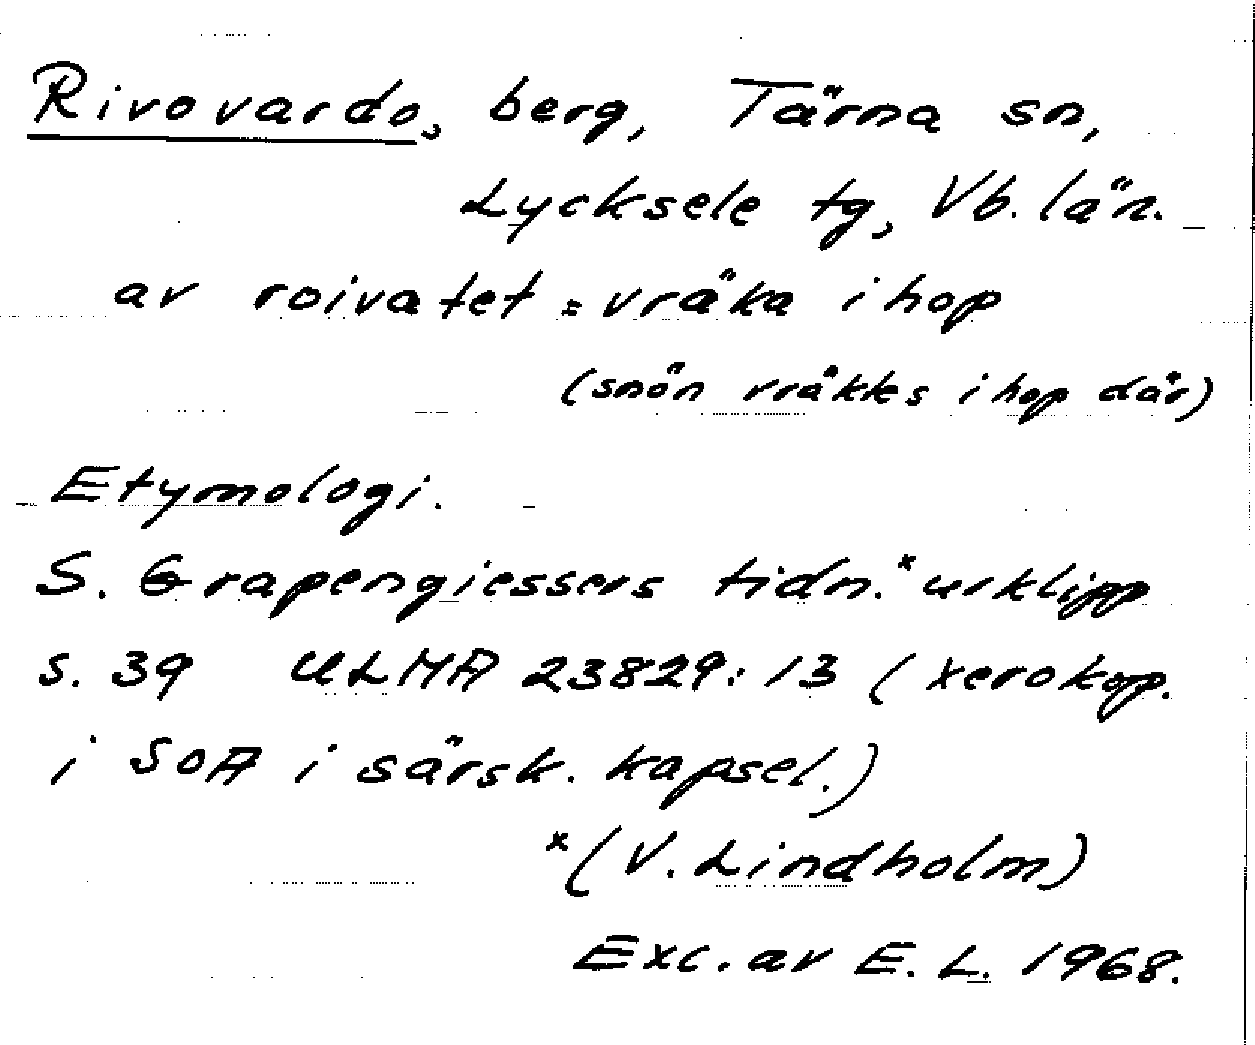 Rivovardo, berg, Tärna sn,
Lycksele tg, Vb. län.
av roivatet = vräka ihop
(snön vräktes ihop där)
Etymologi.
S. Grapengiessers tidn.x urklipp
s. 39 ULMA 23829:13 (xerokop.
i SOA i särsk. kapsel.)
x (V. Lindholm)
Exc. av E. L. 1968.